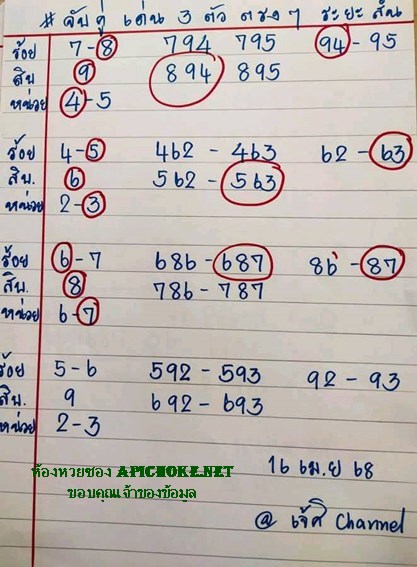 # จับคู่ เด่น 3 ตัว ตรง ๆ ระยะสั้น
ร้อย 7-8 794 795 94-95
สิบ 9 894 895
หน่วย 4-5
ร้อย 4-5 462-463 62-63
สิบ. 6 562-563
หน่วย 2-3
ร้อย 6-7 686-687 86-87
สิบ. 8 786-787
หน่วย 6-7
ร้อย 5-6 592-593 92-93
สิบ. 9 692-693
หน่วย 2-3
ห้องหวยซอง APICHOKE.NET
ขอบคุณเจ้าของข้อมูล
16 เม.ย 68
@ เจ้ศิ Channel